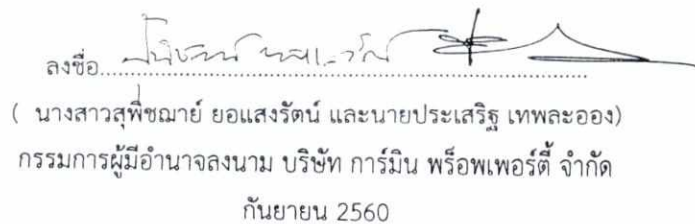 ลงชื่อ
( นางสาวสุพิชฌาย์ ยอแสงรัตน์ และนายประเสริฐ เทพละออง)
กรรมการผู้มีอำนาจลงนาม บริษัท การ์มิน พร็อพเพอร์ตี้ จำกัด
กันยายน 2560